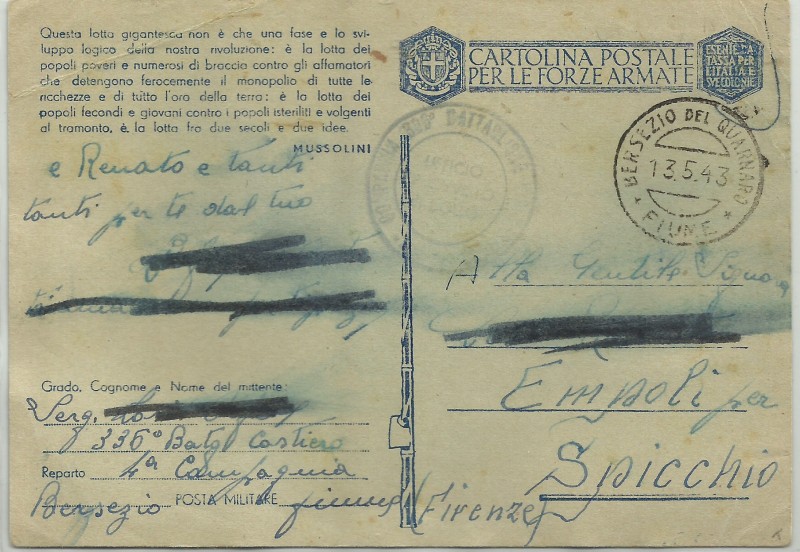 Questa lotta gigantesca non è che una fase e lo svi-
luppo logico della nostra rivoluzione: è la lotta dei
popoli poveri e numerosi di braccia contro gli affamatori
che detengono ferocemente il monopolio di tutte le
ricchezze e di tutto l'oro della terra: è la lotta dei
popoli fecondi e giovani contro i popoli isteriliti e volgenti
al tramonto, è la lotta fra due secoli e due idee.
MUSSOLINI
e Renato e tanti
tanti per te dal tuo
Grado, Cognome e Nome del mittente:
Serg.
336° Batg Costiero
Reparto 4ª Compagnia
Bersezio POSTA MILITARE fiume
CARTOLINA POSTALE
PER LE FORZE ARMATE
ESENTE DA
TASSA PER
L'ITALIA E
SUE COLONIE
UFFICIO
BERSEZIO DEL QUARNARO
13.5.43
FIUME
Alla Gentile Signora
Empoli per
Spicchio
(Firenze)